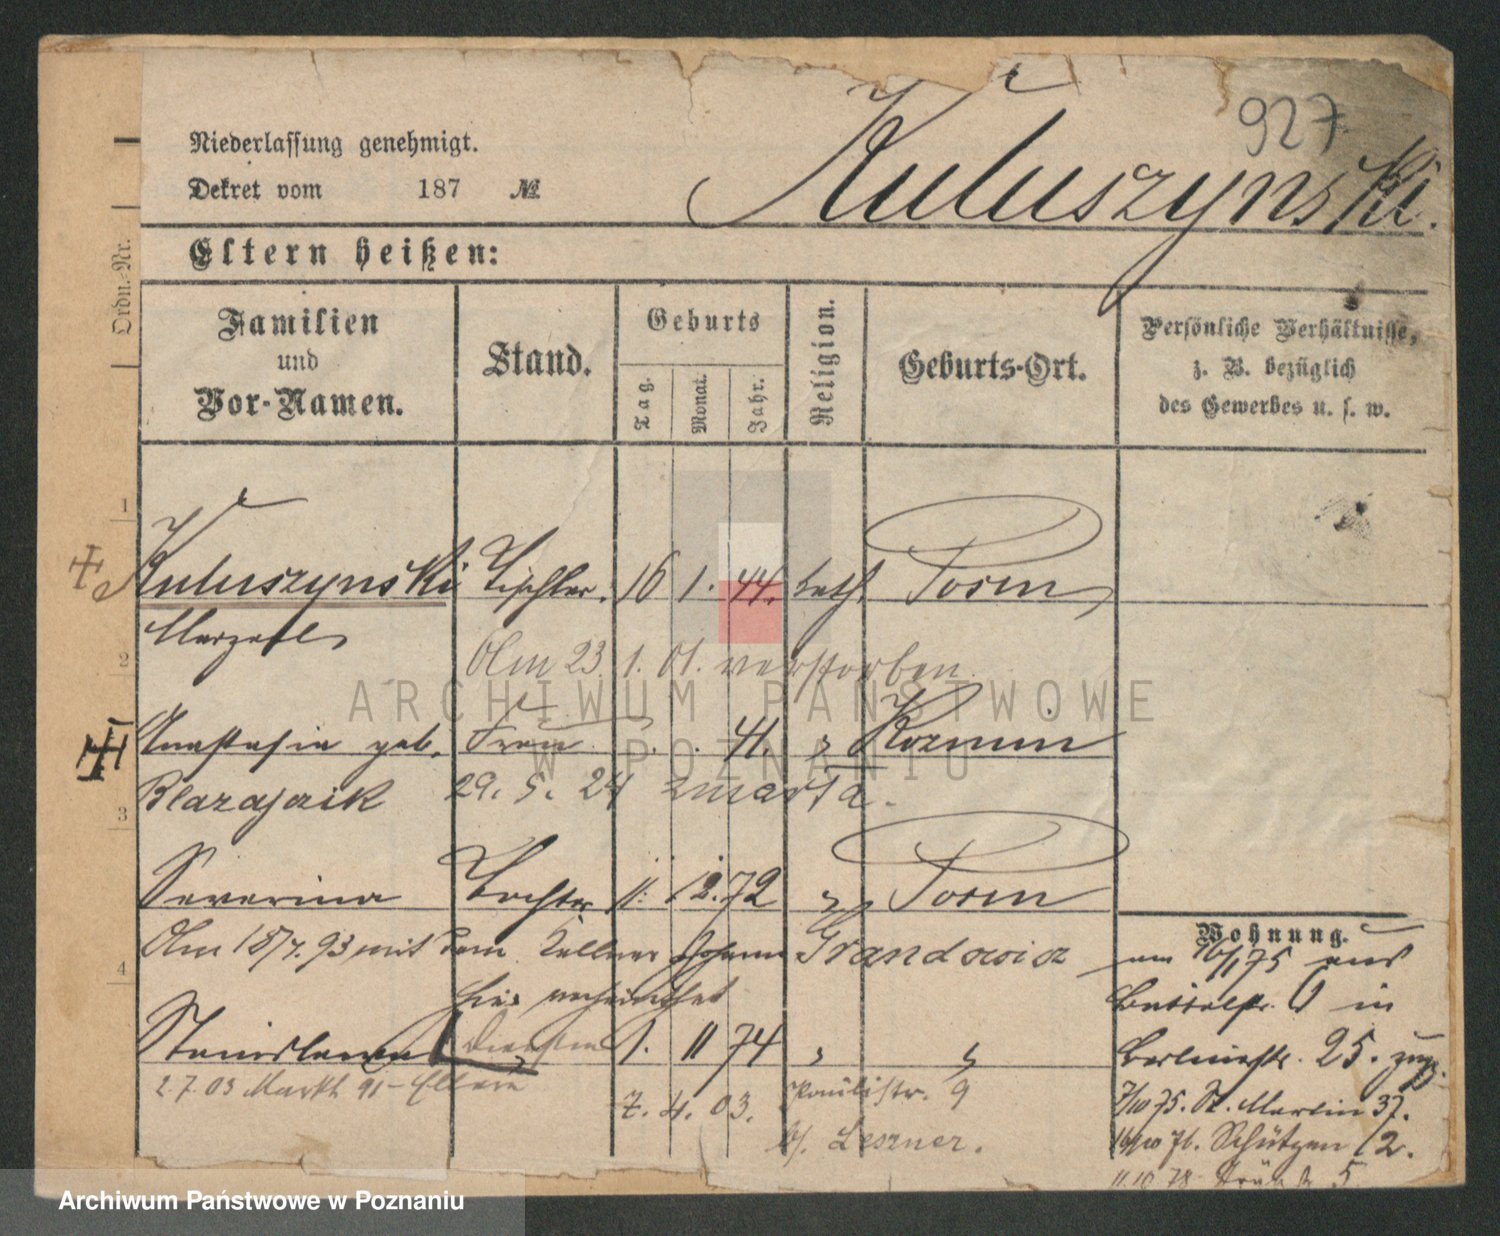 927
Kuluszynski.
Niederlassung genehmigt.
Dekret vom 187 №
Eltern heißen:
Ordn.-Nr.
Familien und Vor-Namen.
Stand.
Geburts
Tag.
Monat.
Jahr.
Religion.
Geburts-Ort.
Persönliche Verhältnisse,
z. B. bezüglich
des Gewerbes u. s. w.
1
Kuluszynski Tischler. 16 1. 44. kath. Posen
Marzell
2
Am 23. 1. 01. verstorben
Anastasia geb. Frau 41. Kozmin
Blazajczik 29. 5. 24 zmarła.
3
Severina Tochter 11. 12. 72 Posen
Am 18/7. 93 mit dem Kellner Johann Grandowicz
hier verheirathet
4
Stanislaus 1. 11 74
2. 7. 03 Markt 91 - Eltern
7. 4. 03. Paulistr. 9
b/. Leszner.
Wohnung.
am 16/1 75 aus
in
Berlinerstr. 25. zug.
7/10 75. St. Martin 37.
16/10 76. Schützen 12.
11.10 78 5
ARCHIWUM PAŃSTWOWE
W POZNANIU
Archiwum Państwowe w Poznaniu